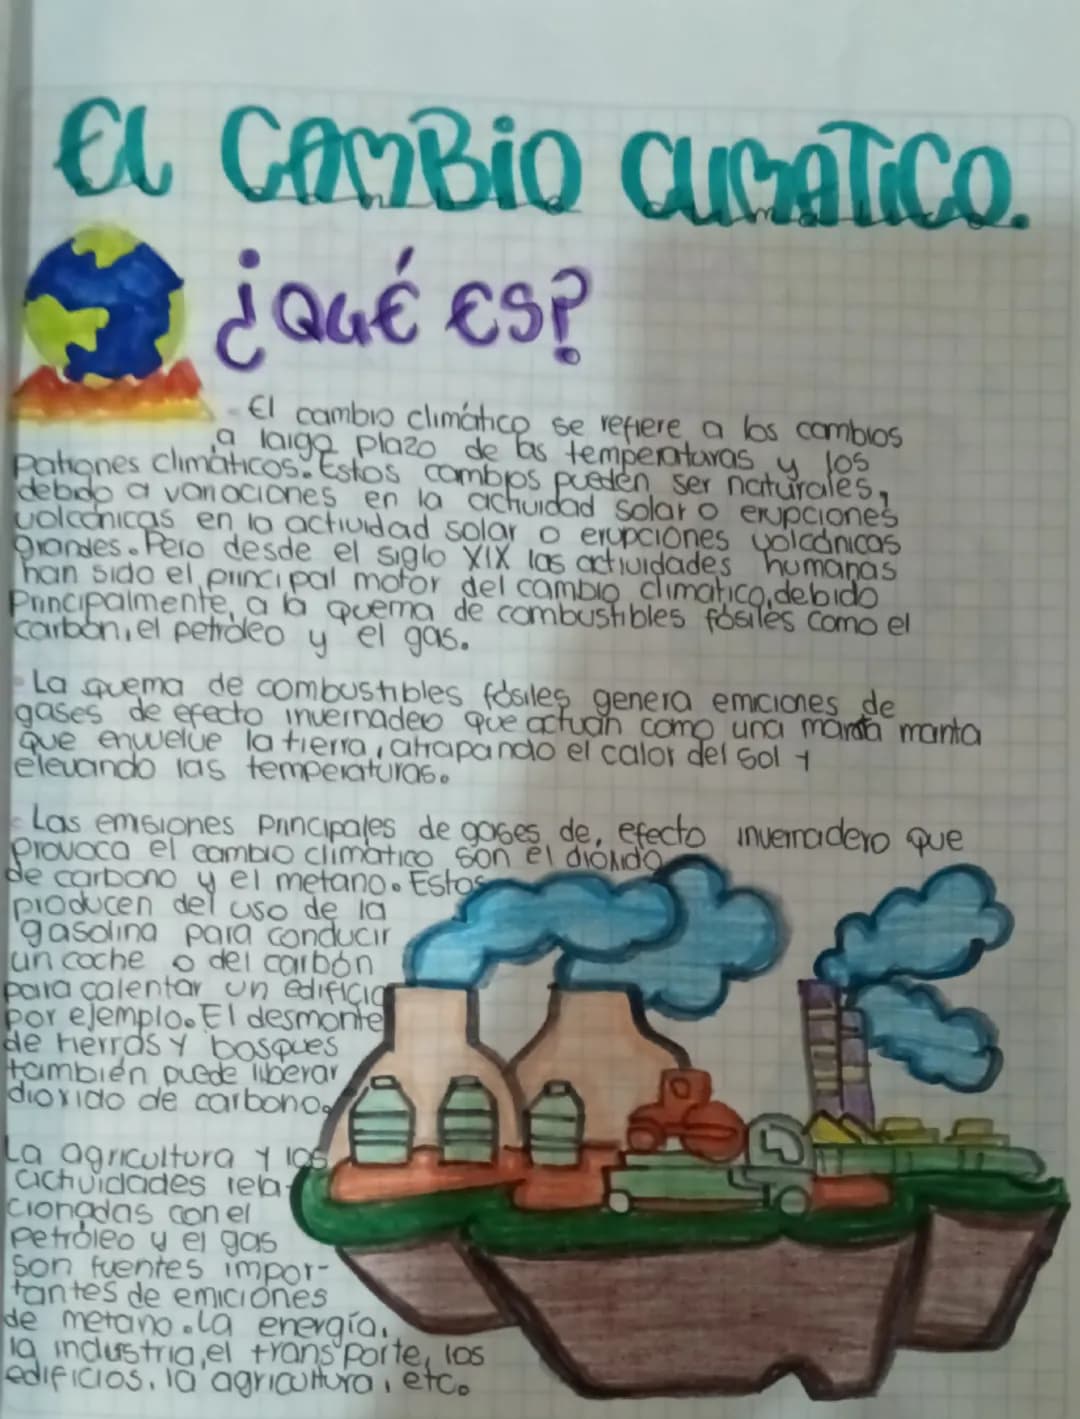 El CAMBiO CLIMATICO.
¿QUÉ ES?
El cambio climático se refiere a los cambios
a largo plazo de las temperaturas y los
Patrones climáticos. Estos cambios pueden ser naturales,
debido a variaciones en la actividad solar o erupciones
volcánicas en la actividad solar o erupciones volcánicas
grandes. Pero desde el siglo XIX las actividades humanas
han sido el principal motor del cambio climatico, debido
Principalmente, a la quema de combustibles fósiles como el
carbón, el petróleo y el gas.
La quema de combustibles fósiles genera emiciones de
gases de efecto invernadero que actúan como una manta
que envuelve la tierra, atrapando el calor del Sol y
elevando las temperaturas.
Las emisiones Principales de gases de, efecto invernadero que
Provoca el cambio climático son el dióxido
de carbono y el metano. Estos
producen del uso de la
gasolina para conducir
un coche o del carbón
para calentar un edificio
por ejemplo. El desmonte
de tierras y bosques
también puede liberar
dioxido de carbono.
La agricultura y las
actividades rela-
cionadas con el
petróleo y el gas
son fuentes impor-
tantes de emiciones
de metano. La energía,
la industria, el transporte, los
edificios, la agricultura, etc.